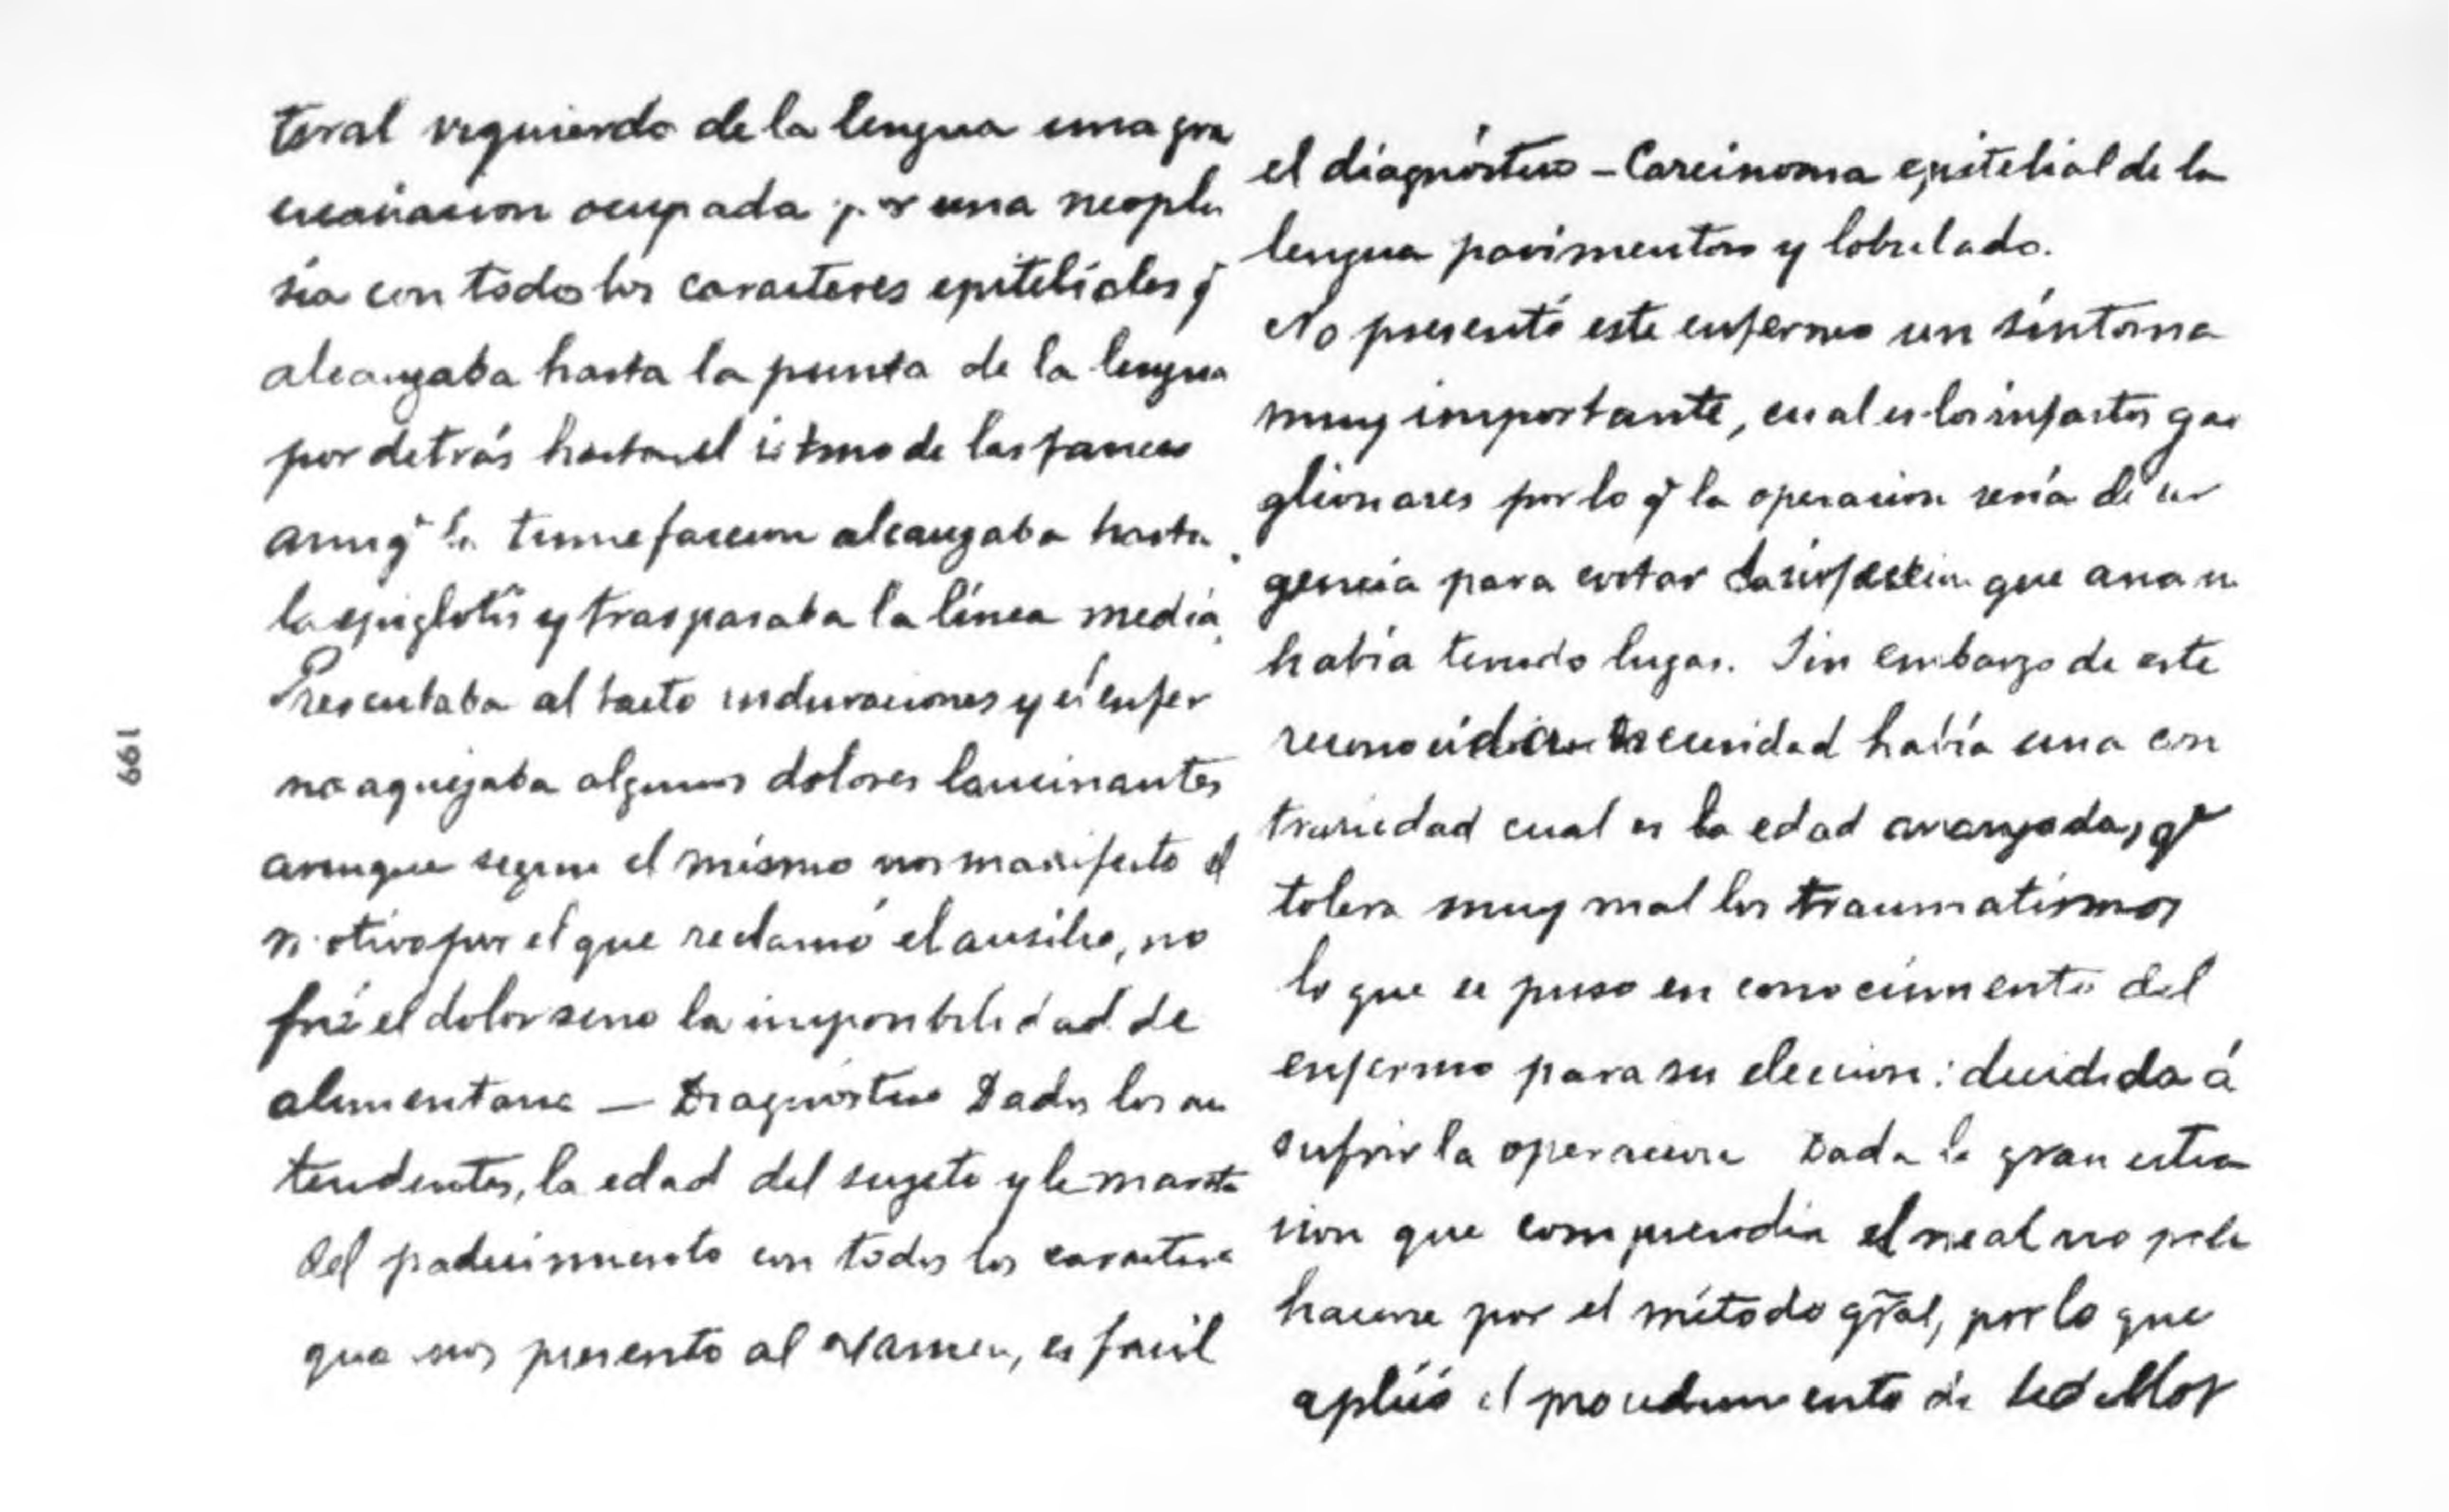 teral izquierdo de la lengua una gra
escavacion ocupada por una neopla
sia con todos los caracteres epiteliales q̃
alcanzaba hasta la punta de la lengua
por detrás hasta el istmo de las fauces
aunq̃ la tumefaccion alcanzaba hasta
la epiglotis y traspasaba la línea media,
Presentaba al tacto induraciones y el enfer
mo aquejaba algunos dolores lancinantes
aunque segun el mismo nos manifesto el
motivo por el que reclamó el ausilio, no
fué el dolor sino la imposibilidad de
alimentarse — Diagnóstico Dados los an
tendentes, la edad del sugeto y la marcha
del padecimiento con todos los caracteres
que nos presento al examen, es facil
199
el diagnóstico – Carcinoma epitelial de la
lengua pavimentoso y lobulado.
No presentó este enfermo un síntoma
muy importante, cual es los infartos gan
glionares por lo q̃ la operacion sería de ur
gencia para evitar la infección que aun no
había tenido lugar. Sin embargo de este
reconocida necesidad había una con
trariedad cual es la edad avanzada, q̃
tolera muy mal los traumatismos
lo que se puso en conocimiento del
enfermo para su eleccion: decidida á
sufrir la operacion Dada la gran esten
sion que comprendia el mal no pudo
hacerse por el método gral, por lo que
aplicó el procedimiento de Sedillot